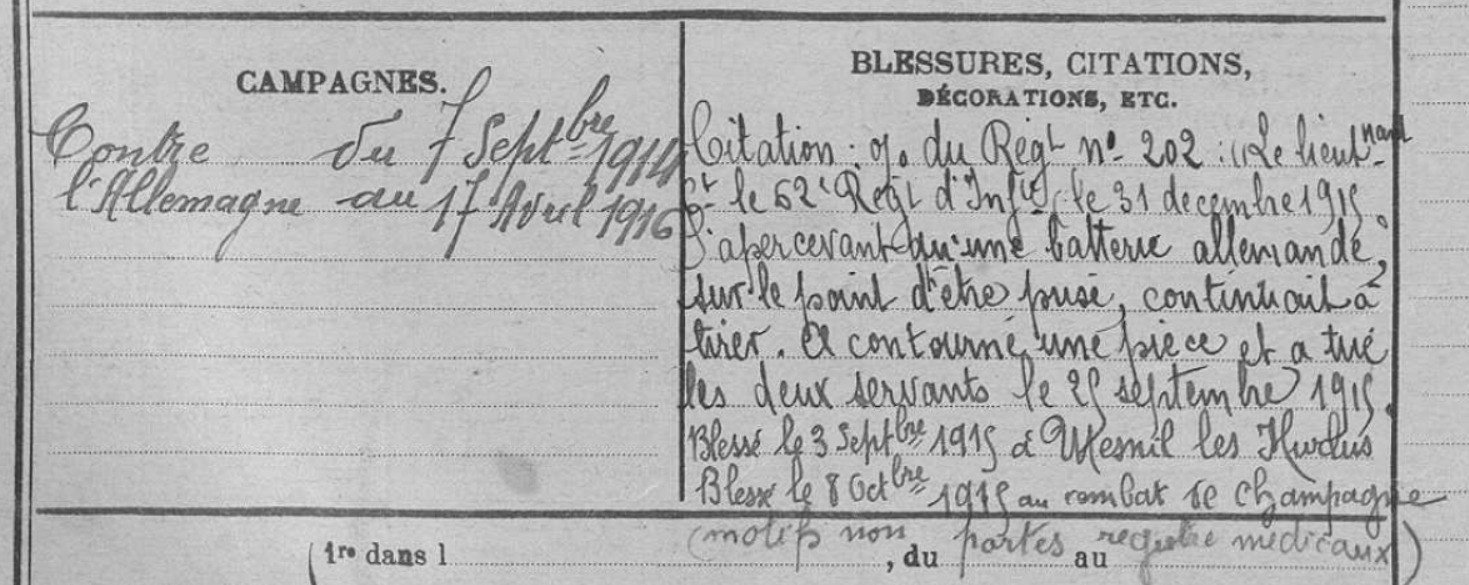 CAMPAGNES.
Contre du 7 Septbre 1914
l'Allemagne au 17 Avril 1916
BLESSURES, CITATIONS,
DÉCORATIONS, ETC.
Citation : o/o du Régt n° 202 : "Le lieutnant
Ct le 62e Régt d'Infie, le 31 décembre 1915.
S'apercevant qu'une batterie allemande,
sur le point d'être prise, continuait à
tirer. A contourné une pièce et a tué
les deux servants le 25 septembre 1915.
Blessé le 3 Septbre 1915 à Mesnil les Hurlus
Blessé le 8 Octbre 1915 au combat de Champagne
(motifs non portés registre médicaux)
1re dans l , du au